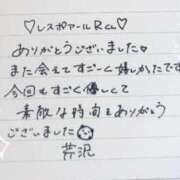 ♡レスポアールRさん
ありがとうございました♡
また会えてすごーく嬉しかったです
今回もすごく優しくて
素敵な時間もありがとう
ございました
芦沢